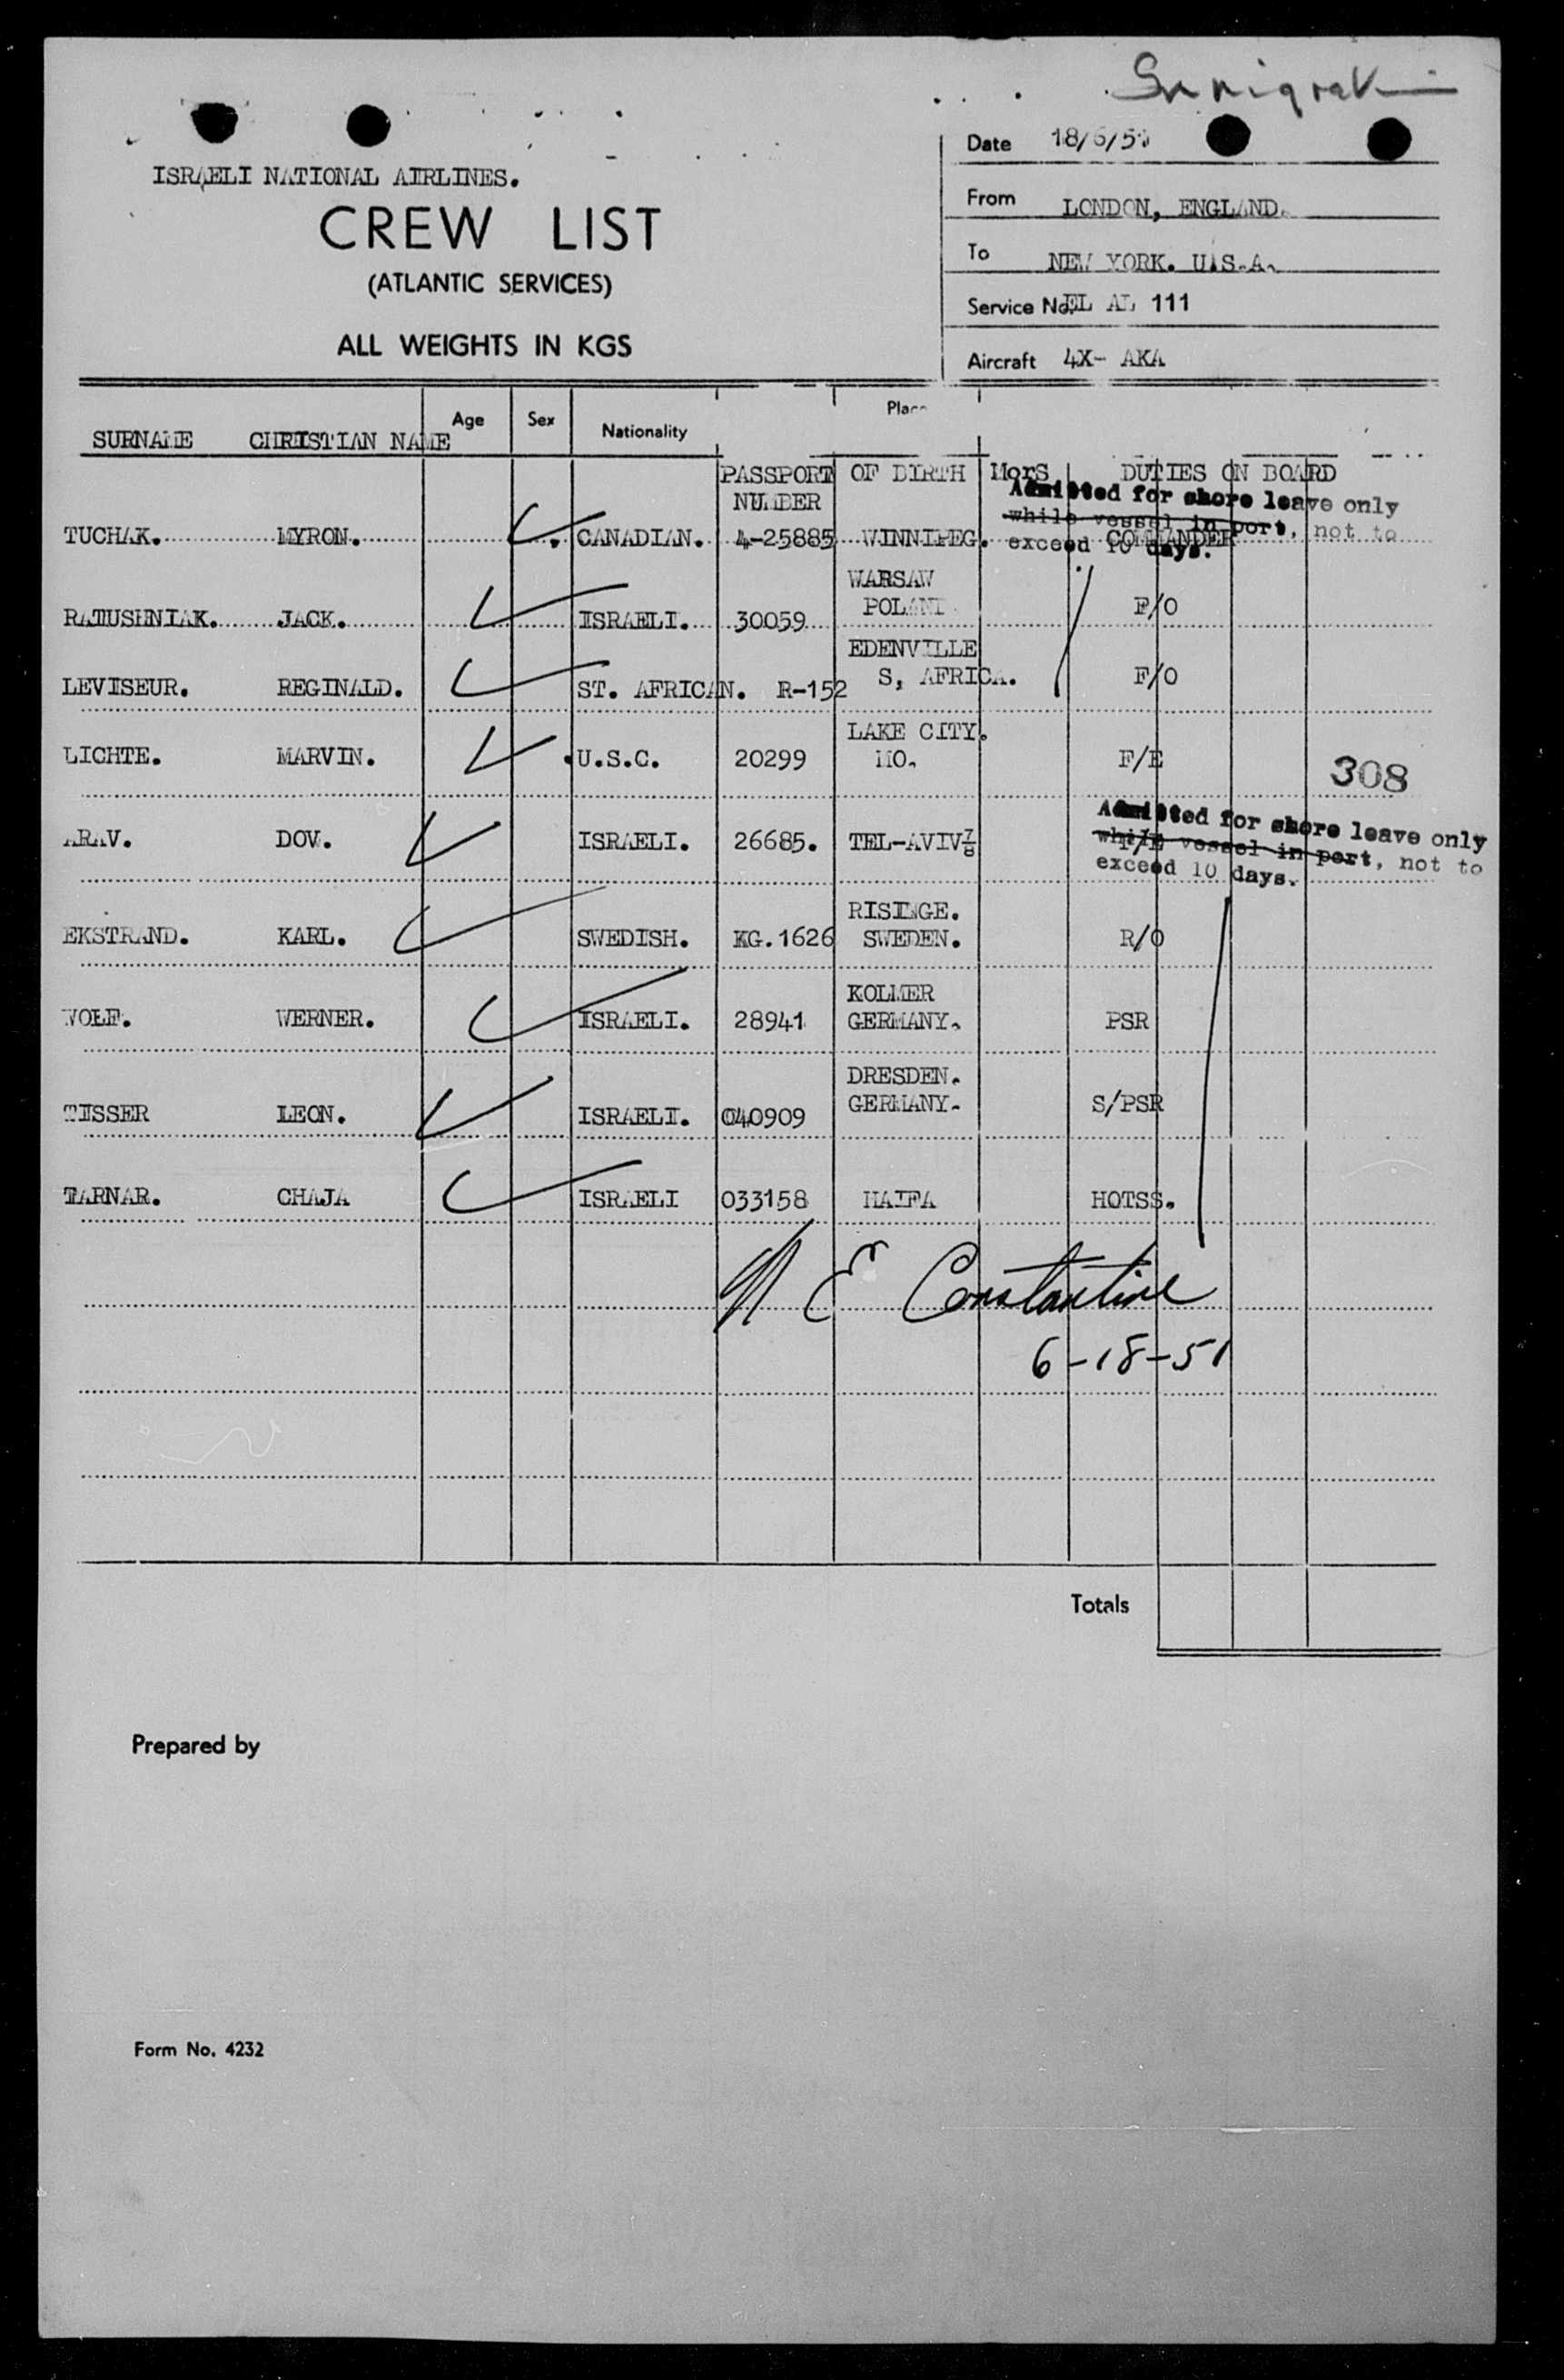 Immigration
Date 18/6/51
ISRAELI NATIONAL AIRLINES.
From LONDON, ENGLAND.
CREW LIST
To NEW YORK. U.S.A.
(ATLANTIC SERVICES)
Service No. EL AL 111
ALL WEIGHTS IN KGS
Aircraft 4X- AKA
SURNAME CHRISTIAN NAME Age Sex Nationality Place
PASSPORT OF BIRTH MorS DUTIES ON BOARD
NUMBER
Admitted for shore leave only
while vessel in port, not to
exceed 10 days.
TUCHAK. MYRON. CANADIAN. 4-25885 WINNIPEG. COMMANDER
WARSAW
RATUSHNIAK. JACK. ISRAELI. 30059 POLAND F/O
EDENVILLE
LEVISEUR. REGINALD. ST. AFRICAN. R-152 S, AFRICA. F/O
LAKE CITY.
LICHTE. MARVIN. U.S.C. 20299 MO. F/E
308
Admitted for shore leave only
while vessel in port, not to
exceed 10 days.
ARAV. DOV. ISRAELI. 26685. TEL-AVIV⅞
RISINGE.
EKSTRAND. KARL. SWEDISH. KG.1626 SWEDEN. R/O
KOLMER
WOLF. WERNER. ISRAELI. 28941 GERMANY. PSR
DRESDEN.
TISSER LEON. ISRAELI. 040909 GERMANY. S/PSR
TARNAR. CHAJA ISRAELI 033158 HAIFA HOTSS.
N E Constantine
6-18-51
Totals
Prepared by
Form No. 4232